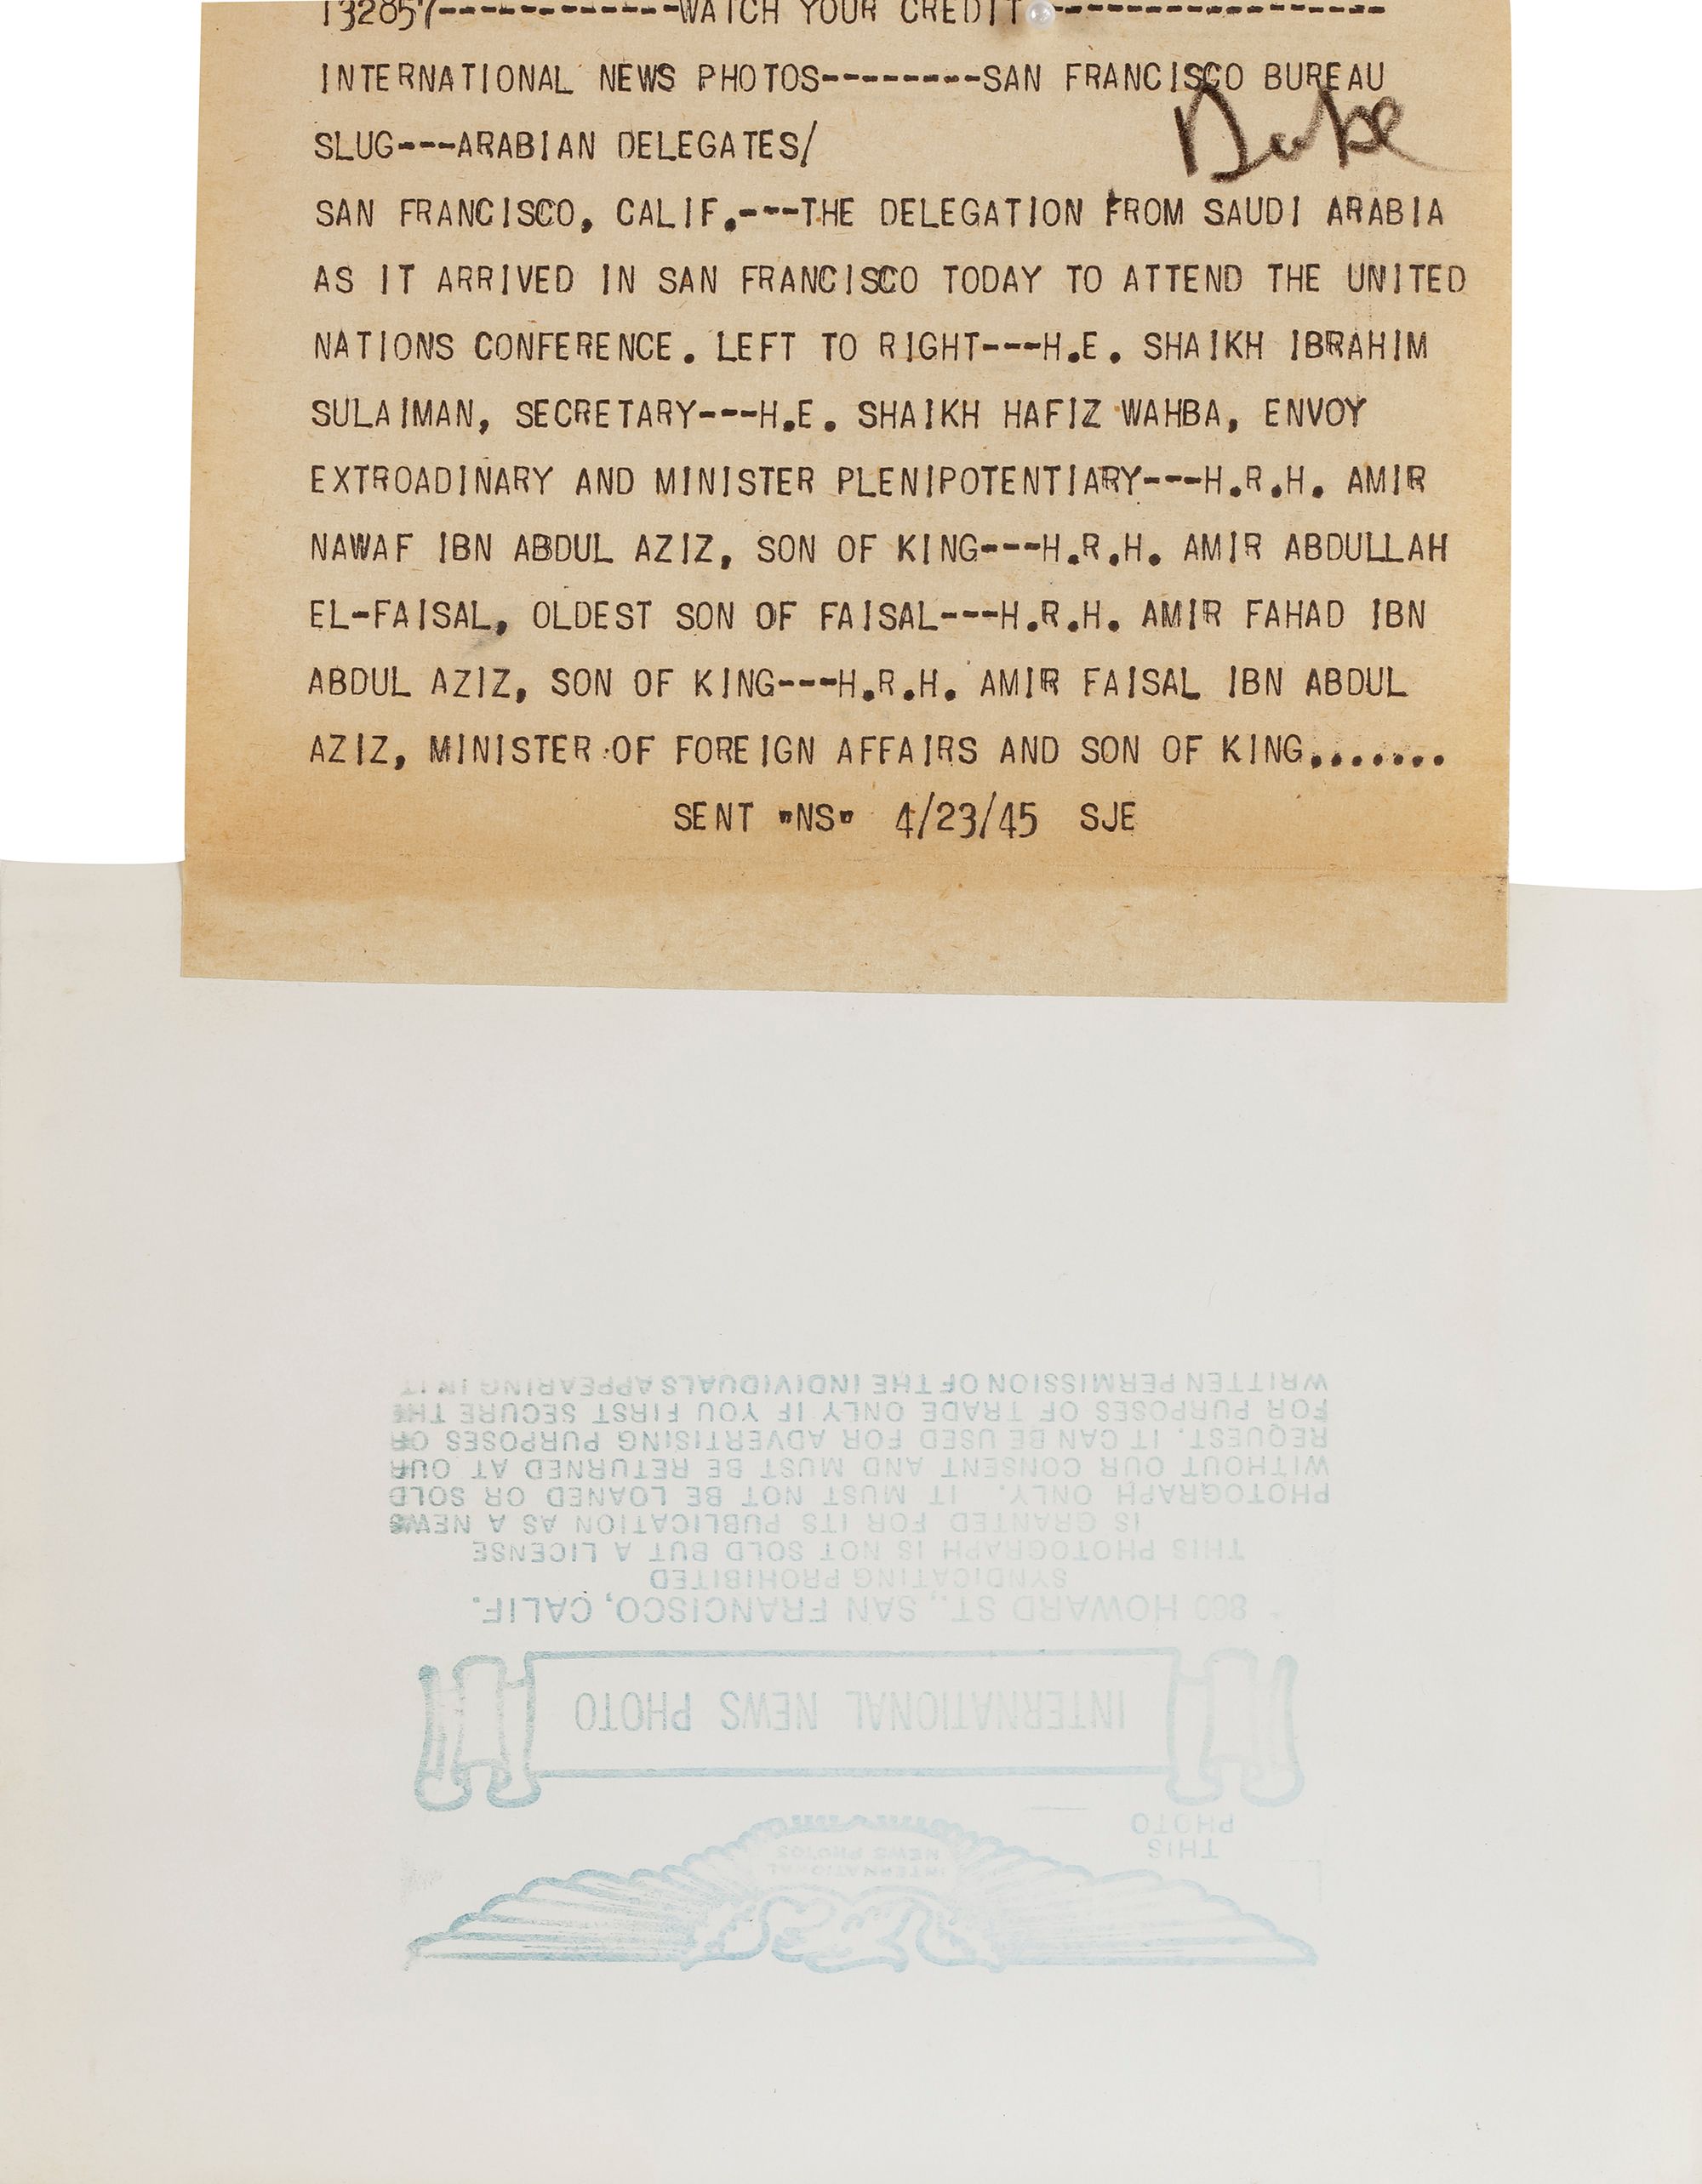 132857------------WATCH YOUR CREDIT-----------------
INTERNATIONAL NEWS PHOTOS--------SAN FRANCISCO BUREAU
Duke
SLUG---ARABIAN DELEGATES/
SAN FRANCISCO, CALIF.---THE DELEGATION FROM SAUDI ARABIA
AS IT ARRIVED IN SAN FRANCISCO TODAY TO ATTEND THE UNITED
NATIONS CONFERENCE. LEFT TO RIGHT---H.E. SHAIKH IBRAHIM
SULAIMAN, SECRETARY---H.E. SHAIKH HAFIZ WAHBA, ENVOY
EXTROADINARY AND MINISTER PLENIPOTENTIARY---H.R.H. AMIR
NAWAF IBN ABDUL AZIZ, SON OF KING---H.R.H. AMIR ABDULLAH
EL-FAISAL, OLDEST SON OF FAISAL---H.R.H. AMIR FAHAD IBN
ABDUL AZIZ, SON OF KING---H.R.H. AMIR FAISAL IBN ABDUL
AZIZ, MINISTER OF FOREIGN AFFAIRS AND SON OF KING.......
SENT "NS" 4/23/45 SJE
INTERNATIONAL
NEWS PHOTOS
THIS
PHOTO
INTERNATIONAL NEWS PHOTO
860 HOWARD ST., SAN FRANCISCO, CALIF.
SYNDICATING PROHIBITED
THIS PHOTOGRAPH IS NOT SOLD BUT A LICENSE
IS GRANTED FOR ITS PUBLICATION AS A NEWS
PHOTOGRAPH ONLY. IT MUST NOT BE LOANED OR SOLD
WITHOUT OUR CONSENT AND MUST BE RETURNED AT OUR
REQUEST. IT CAN BE USED FOR ADVERTISING PURPOSES OR
FOR PURPOSES OF TRADE ONLY IF YOU FIRST SECURE THE
WRITTEN PERMISSION OF THE INDIVIDUALS APPEARING IN IT